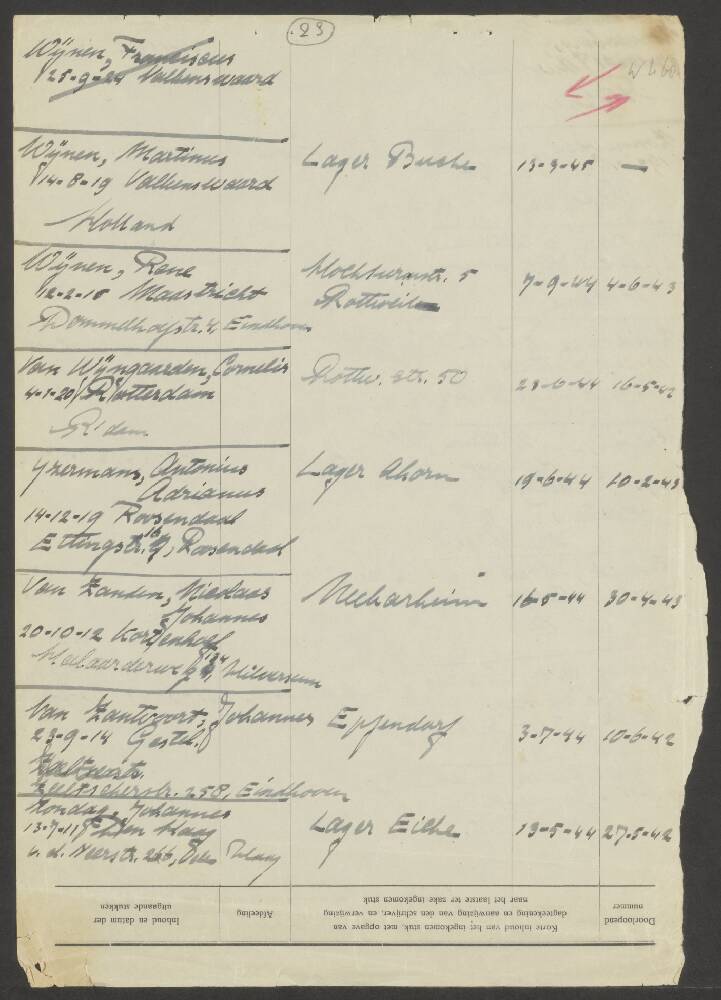 23
Wijnen, Franciscus
25-9-24 Valkenswaard
Wijnen, Martinus Lager Buche 13-3-45 —
14-8-19 Valkenswaard
Holland
Wijnen, Rene Hochturmstr. 5 7-9-44 4-6-43
12-2-18 Maastricht Rottweil
Dommelhofstr. 4, Eindhoven
Van Wijngaarden, Cornelis Rottw. str. 50 16-5-42
4-1-20 Rotterdam
R'dam
Yzermans, Antonius Lager Ahorn 19-6-44 10-2-43
Adrianus
14-12-19 Roosendaal
Ettingstr. Roosendaal
Van Zanden, Nicolaas Neckarheim 16-5-44 30-4-43
Johannes
20-10-12 Kortenhoef
Hilversum
Van Zantvoort, Johannes Epfendorf 3-7-44 10-6-42
23-9-14 Gestel.
258, Eindhoven
Zondag, Johannes Lager Eiche 13-5-44 27-5-42
13-7-11 Den Haag
v. d. Neerstr. 266, Den Haag
Doorloopend
nummer
Korte inhoud van het ingekomen stuk, met opgave van
dagteekening en aanwijzing van den schrijver, en verwijzing
naar het laatste ter zake ingekomen stuk
Afdeeling
Inhoud en datum der
uitgaande stukken